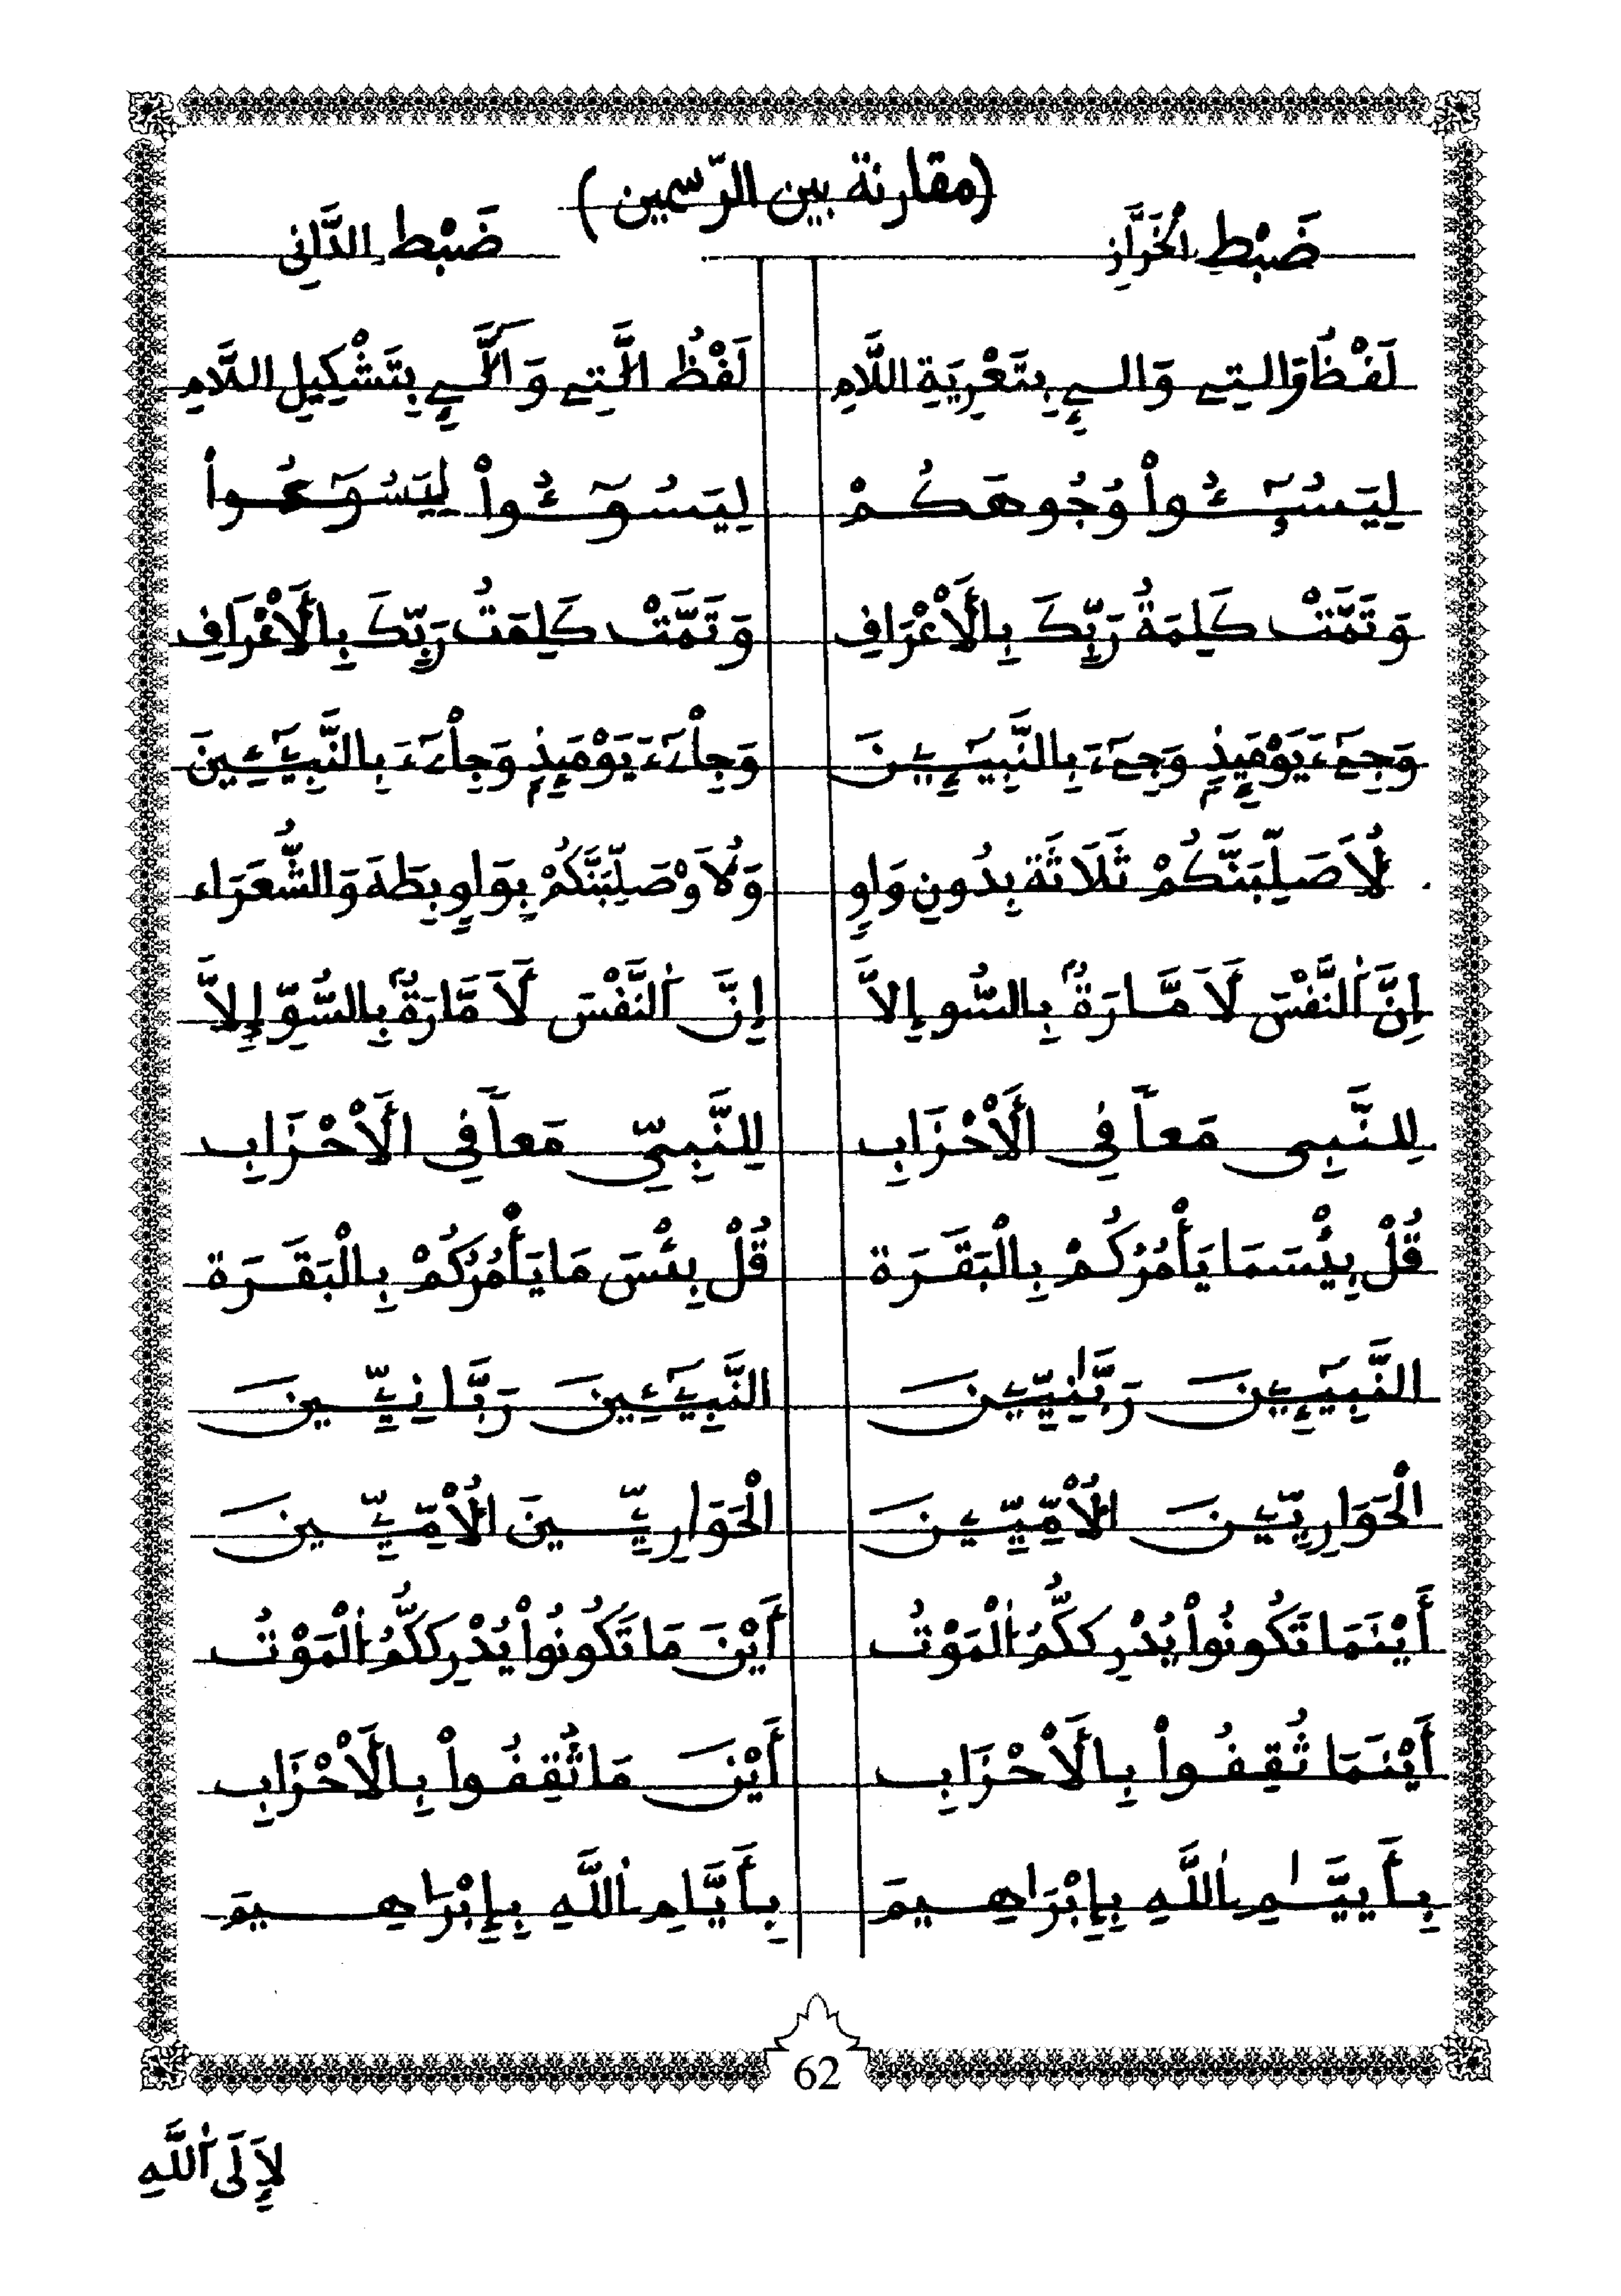 (مقارنة بين الرّسمين)
ضَبْطِ الخَرَّازِ ضَبْطِ الدَّانِي
لَفْظُ وَالتِے وَالےِ بِتَعْرِيَةِ اللَّامِ لَفْظُ الَّتِے وَالَّےِ بِتَشْكِيلِ اللَّامِ
لِيَسُـۥٓـُٔواْ وُجُوهَكُمْ لِيَسُوٓـُٔواْ لِيَسُوٓءُواْ
وَتَمَّتْ كَلِمَةُ رَبِّكَ بِالَاعْرَافِ وَتَمَّتْ كَلِمَتُ رَبِّكَ بِالَاعْرَافِ
وَجِےٓءَ يَوْمَئِذٍ وَجِےٓءَ بِالنَّبِيـِٕۧنَ وَجِاْےٓءَ يَوْمَئِذٍ وَجِاْےٓءَ بِالنَّبِيٓـِٕينَ
لُأَصَلِّبَنَّكُمْ ثَلَاثَة بِدُونِ وَاوٍ وَلَأُوْصَلِّبَنَّكُمْ بِوَاوٍ بِطَهَ وَالشُّعَرَاء
إِنَّ اَلنَّفْسَ لَأَمَّارَةٌ بِالسُّو إِلَّا إِنَّ اَلنَّفْسَ لَأَمَّارَةٌ بِالسُّوِّ إِلَّا
لِلنَّبِى مَعاً فِي الَاحْزَابِ لِلنَّبِيِّ مَعاً فِي الَاحْزَابِ
قُلْ بِيْسَمَا يَأْمُرُكُمْ بِالْبَقَرَة قُلْ بِئْسَ مَا يَأْمُرُكُمْ بِالْبَقَرَة
النَّبِيٓـِٕۧنَ رَبَّٰنِيِّـۧنَ النَّبِيٓـِٕينَ رَبَّانِيِّينَ
الْحَوَارِيِّـۧنَ الُامِّيِّـۧنَ الْحَوَارِيِّينَ الُامِّيِّينَ
أَيْنَمَا تَكُونُواْ يُدْرِككُّمُ اُلْمَوْتُ أَيْنَ مَا تَكُونُواْ يُدْرِككُّمُ اُلْمَوْتُ
أَيْنَمَا ثُقِفُواْ بِالَاحْزَابِ أَيْنَ مَا ثُقِفُواْ بِالَاحْزَابِ
بِأَييَّٰمِ اِللَّهِ بِإِبْرَاهِيمَ بِأَيَّامِ اِللَّهِ بِإِبْرَاهِيمَ
62
لَإِلَى اَللَّهِ